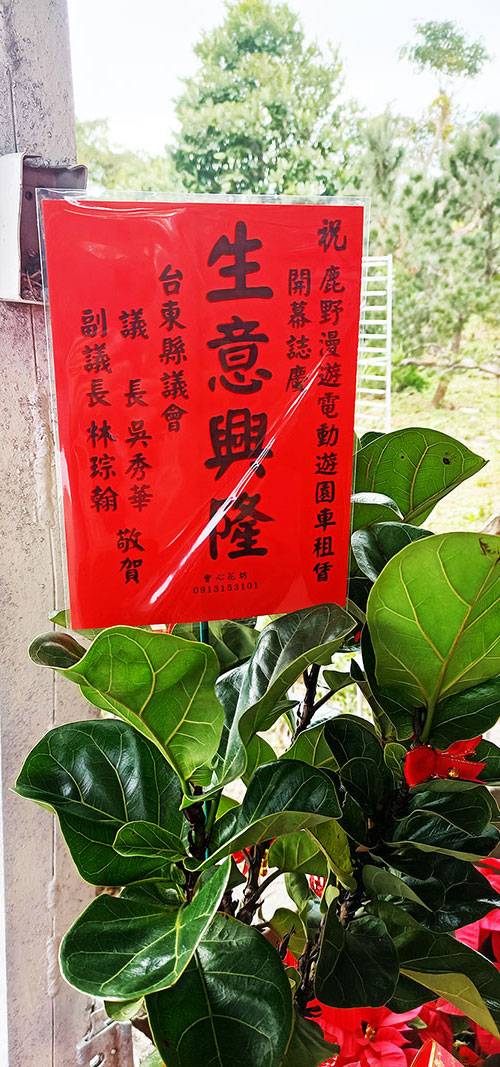 祝鹿野漫遊電動遊園車租賃
開幕誌慶
生意興隆
會心花坊
0913153101
台東縣議會
議長吳秀華
副議長林琮翰
敬賀